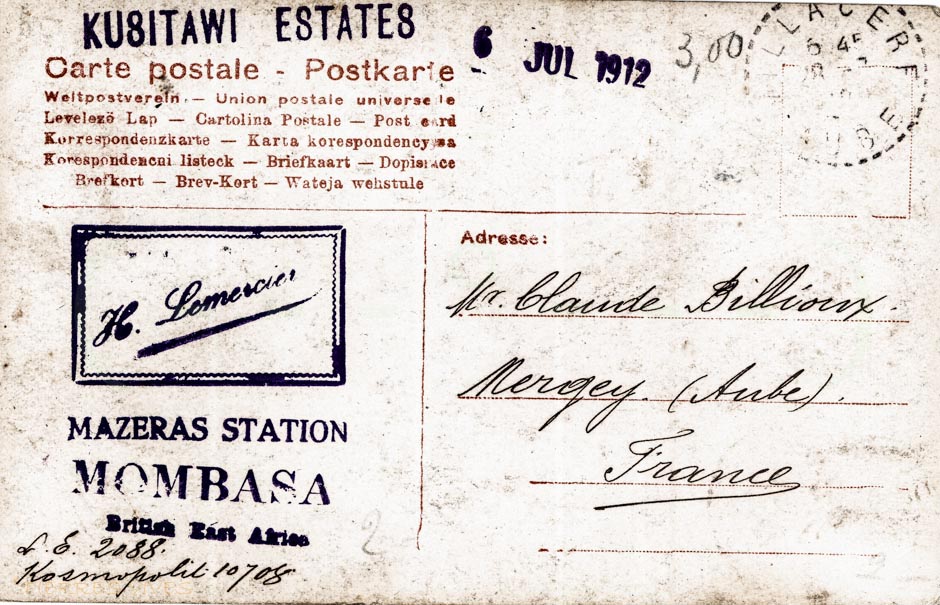 KUSITAWI ESTATES
6 JUL 1912
3,00
LLACERF
6 45
E
Carte postale - Postkarte
Weltpostverein. — Union postale universelle
Levelező Lap — Cartolina Postale — Post card
Korrespondenzkarte — Karta korespondencyjna
Korespondencni listeck — Briefkaart — Dopisnice
Brefkort — Brev-Kort — Wateja wehstule
H. Lemercier
MAZERAS STATION
MOMBASA
British East Africa
L. E. 2088.
Kosmopolit 10708
2
Adresse:
Mr. Claude Billioux.
Mergey. (Aube).
France